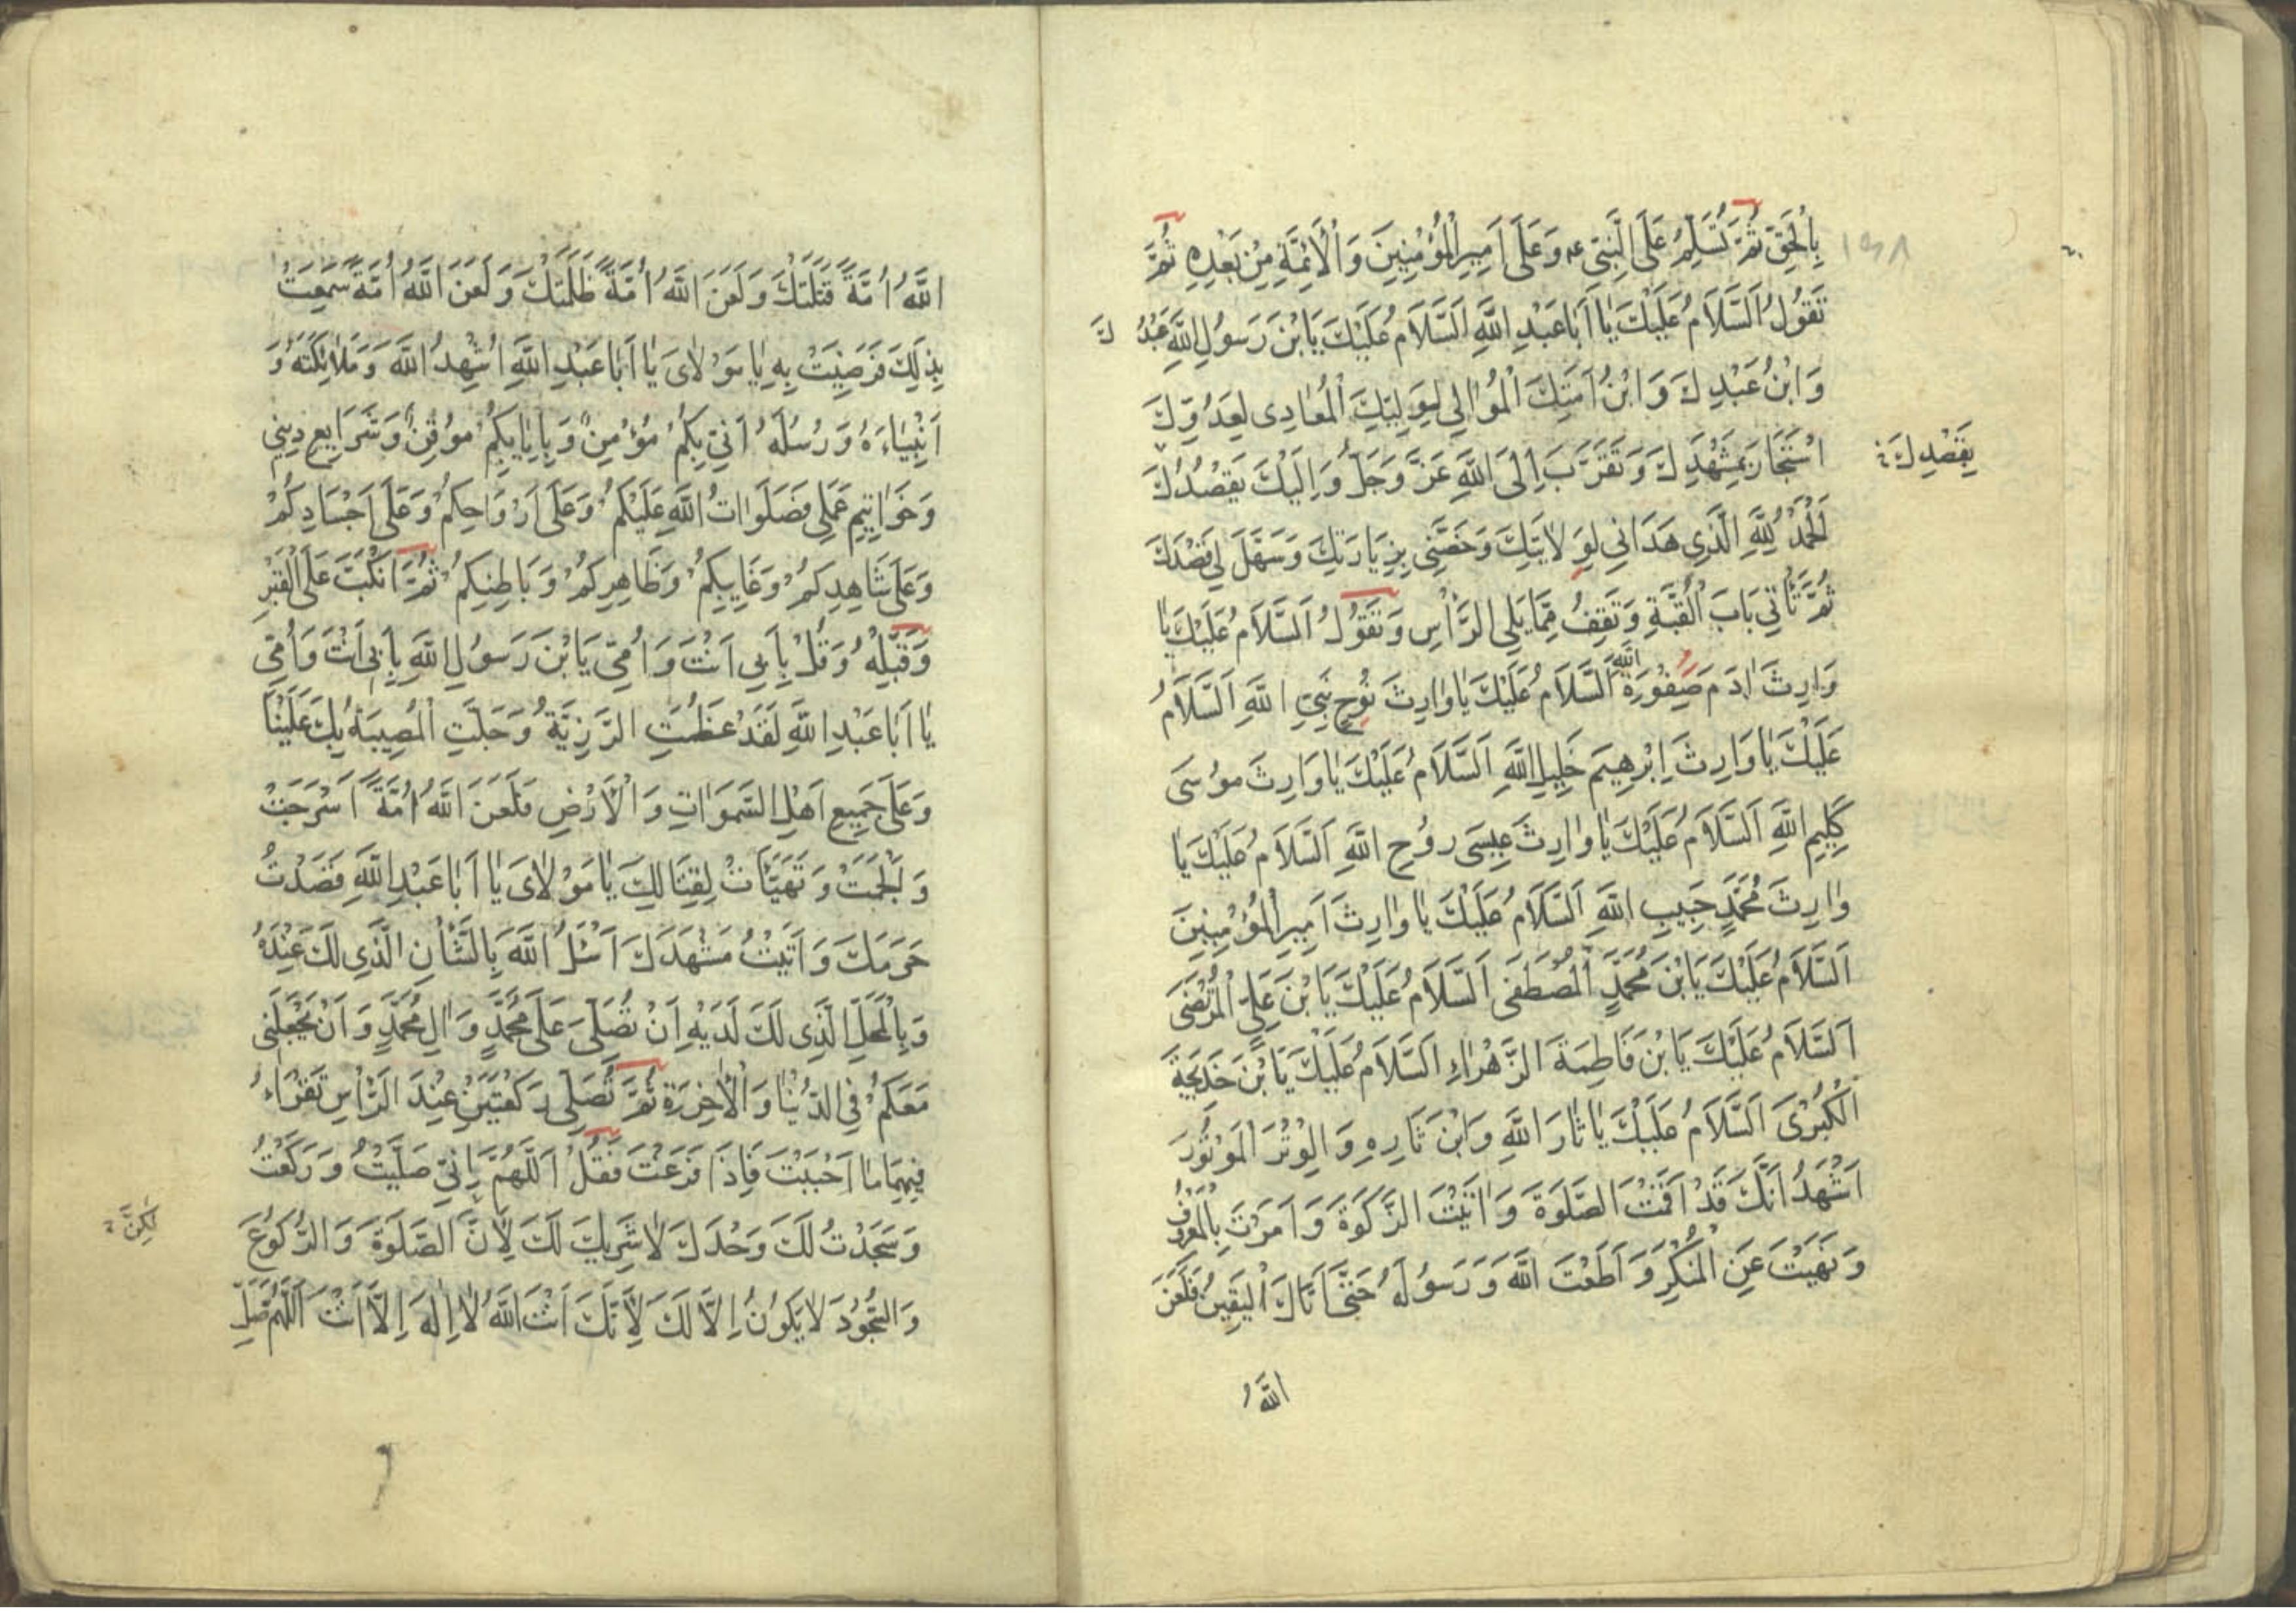 بِالْحَقِّ ثُمَّ تُسَلِّمُ عَلَى النَّبِيِّ عه وَعَلَى اَمِيرِ الْمُؤْمِنِينَ وَالْأَئِمَّةِ مِنْ بَعْدِهِ ثُمَّ
تَقُولُ اَلسَّلَامُ عَلَيْكَ يَا اَبَا عَبْدِ اللَّهِ اَلسَّلَامُ عَلَيْكَ يَابْنَ رَسُولِ اللَّهِ عَبْدُكَ
وَابْنُ عَبْدِكَ وَابْنُ اَمَتِكَ الْمُوَالِي لِوَلِيِّكَ الْمُعَادِى لِعَدُوِّكَ
اسْتَجَارَ بِمَشْهَدِكَ وَتَقَرَّبَ اِلَى اللَّهِ عَزَّ وَجَلَّ وَاِلَيْكَ بِقَصْدُكَ
بِقَصْدِكَ
اَلْحَمْدُ لِلَّهِ الَّذِي هَدَانِي لِوَلَايَتِكَ وَخَصَّنِي بِزِيَارَتِكَ وَسَهَّلَ لِي قَصْدَكَ
ثُمَّ تَأْتِي بَابَ الْقُبَّةِ وَتَقِفُ مِمَّا يَلِي الرَّأْسِ وَتَقُولُ اَلسَّلَامُ عَلَيْكَ يَا
وَارِثَ ادَمَ صَفْوَةِ اللَّهِ اَلسَّلَامُ عَلَيْكَ يَا وَارِثَ نُوحٍ نَبِيِّ اللَّهِ اَلسَّلَامُ
عَلَيْكَ يَا وَارِثَ اِبْرهِيمَ خَلِيلِ اللَّهِ اَلسَّلَامُ عَلَيْكَ يَا وَارِثَ مُوسَى
كَلِيمِ اللَّهِ اَلسَّلَامُ عَلَيْكَ يَا وَارِثَ عِيسَى رُوحِ اللَّهِ اَلسَّلَامُ عَلَيْكَ يَا
وَارِثَ مُحَمَّدٍ حَبِيبِ اللَّهِ اَلسَّلَامُ عَلَيْكَ يَا وَارِثَ اَمِيرِ الْمُؤْمِنِينَ
اَلسَّلَامُ عَلَيْكَ يَابْنَ مُحَمَّدٍ الْمُصْطَفَى اَلسَّلَامُ عَلَيْكَ يَابْنَ عَلِيٍّ الْمُرْتَضَى
اَلسَّلَامُ عَلَيْكَ يَابْنَ فَاطِمَةَ الزَّهْرَاءِ اَلسَّلَامُ عَلَيْكَ يَابْنَ خَدِيجَةَ
الْكُبْرَى اَلسَّلَامُ عَلَيْكَ يَا ثَارَ اللَّهِ وَابْنَ ثَارِهِ وَالْوِتْرَ الْمَوْتُورَ
اَشْهَدُ اَنَّكَ قَدْ اَقَمْتَ الصَّلَوةَ وَاتَيْتَ الزَّكَوةَ وَاَمَرْتَ بِالْمَعْرُوفِ
وَنَهَيْتَ عَنِ الْمُنْكَرِ وَاَطَعْتَ اللَّهَ وَرَسُولَهُ حَتَّى اَتَاكَ الْيَقِينُ فَلَعَنَ
اللَّهُ
اللَّهُ اُمَّةً قَتَلَتْكَ وَلَعَنَ اللَّهُ اُمَّةً ظَلَمَتْكَ وَلَعَنَ اللَّهُ اُمَّةً سَمِعَتْ
بِذلِكَ فَرَضِيَتْ بِهِ يَا مَوْلَاىَ يَا اَبَا عَبْدِ اللَّهِ اُشْهِدُ اللَّهَ وَمَلَائِكَتَهُ وَ
اَنْبِيَاءَهُ وَرُسُلَهُ اَنِّي بِكُمْ مُؤْمِنٌ وَبِاِيَابِكُمْ مُوقِنٌ وَشَرَايِعِ دِينِي
وَخَوَاتِيمِ عَمَلِي فَصَلَوَاتُ اللَّهِ عَلَيْكُمْ وَعَلَى اَرْوَاحِكُمْ وَعَلَى اَجْسَادِكُمْ
وَعَلَى شَاهِدِكُمْ وَغَايِبِكُمْ وَظَاهِرِكُمْ وَبَاطِنِكُمْ ثُمَّ انْكَبَّ عَلَى الْقَبْرِ
وَقَبِّلْهُ وَقُلْ بِاَبِي اَنْتَ وَاُمِّي يَابْنَ رَسُولِ اللَّهِ بِاَبِي اَنْتَ وَاُمِّي
يَا اَبَا عَبْدِ اللَّهِ لَقَدْ عَظُمَتِ الرَّزِيَّةُ وَجَلَّتِ الْمُصِيبَةُ بِكَ عَلَيْنَا
وَعَلَى جَمِيعِ اَهْلِ السَّموَاتِ وَالْأَرْضِ فَلَعَنَ اللَّهُ اُمَّةً اَسْرَجَتْ
وَاَلْجَمَتْ وَتَهَيَّأَتْ لِقِتَالِكَ يَا مَوْلَاىَ يَا اَبَا عَبْدِ اللَّهِ قَصَدْتُ
حَرَمَكَ وَاَتَيْتُ مَشْهَدَكَ اَسْئَلُ اللَّهَ بِالشَّأْنِ الَّذِي لَكَ عِنْدَهُ
وَبِالْمَحَلِّ الَّذِى لَكَ لَدَيْهِ اَنْ تُصَلِّىَ عَلَى مُحَمَّدٍ وَالِ مُحَمَّدٍ وَاَنْ يَجْعَلَنِى
مَعَكُمْ فِي الدُّنْيَا وَالْأخِرَةِ ثُمَّ تُصَلِّى رَكْعَتَيْنِ عِنْدَ الرَّأْسِ تَقْرَاءُ
فِيهِمَا مَا اَحْبَبْتَ فَاِذَا فَرَغْتَ فَقُلْ اَللَّهُمَّ اِنِّي صَلَّيْتُ وَرَكَعْتُ
وَسَجَدْتُ لَكَ وَحْدَكَ لَا شَرِيكَ لَكَ لِأَنَّ الصَّلَوةَ وَالرُّكُوعَ
لكِنَّ
وَالسُّجُودَ لَا يَكُونُ اِلَّا لَكَ لِأَنَّكَ اَنْتَ اللَّهُ لَا اِلهَ اِلَّا اَنْتَ اَللَّهُمَّ صَلِّ